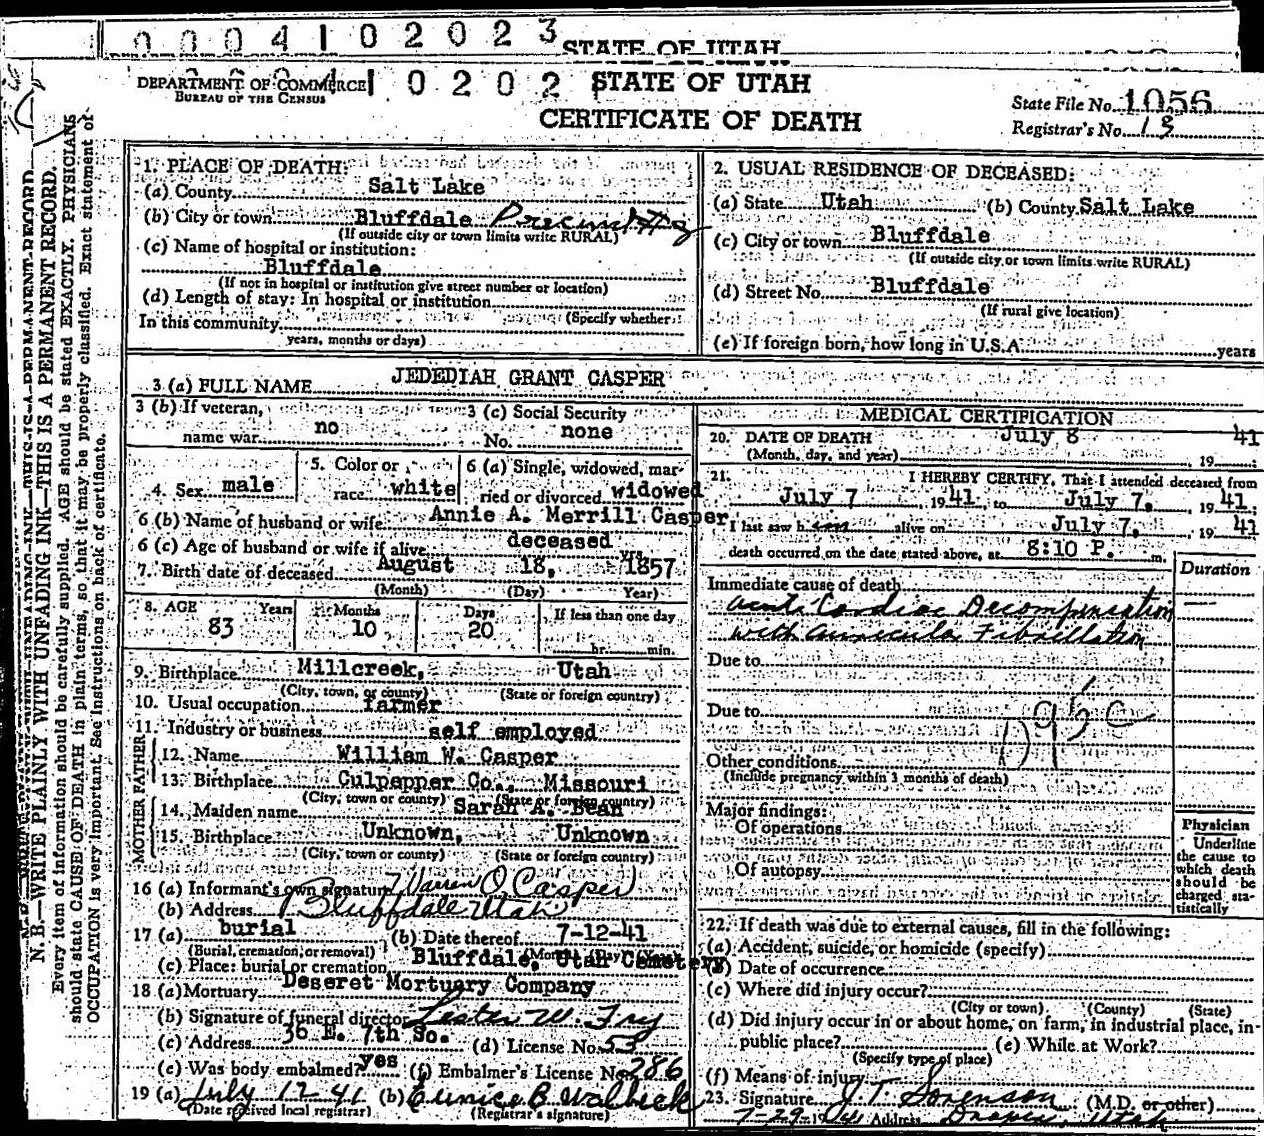 0 0 0 4 1 0 2 0 2 3
STATE OF UTAH
DEPARTMENT OF COMMERCE
BUREAU OF THE CENSUS
1 0 2 0 2
STATE OF UTAH
CERTIFICATE OF DEATH
State File No. 1056
Registrar's No. 13
N. B.—WRITE PLAINLY WITH UNFADING INK—THIS IS A PERMANENT RECORD.
Every item of information should be carefully supplied. AGE should be stated EXACTLY. PHYSICIANS
should state CAUSE OF DEATH in plain terms, so that it may be properly classified. Exact statement of
OCCUPATION is very important. See instructions on back of certificate.
1. PLACE OF DEATH:
(a) County Salt Lake
(b) City or town Bluffdale Precinct
(If outside city or town limits write RURAL)
(c) Name of hospital or institution:
Bluffdale
(If not in hospital or institution give street number or location)
(d) Length of stay: In hospital or institution
(Specify whether
In this community
years, months or days)
2. USUAL RESIDENCE OF DECEASED:
(a) State Utah (b) County Salt Lake
(c) City or town Bluffdale
(If outside city or town limits write RURAL)
(d) Street No. Bluffdale
(If rural give location)
(e) If foreign born, how long in U.S.A. years
3 (a) FULL NAME JEDEDIAH GRANT CASPER
3 (b) If veteran, name war no
3 (c) Social Security No. none
4. Sex male
5. Color or race white
6 (a) Single, widowed, married or divorced widowed
6 (b) Name of husband or wife Annie A. Merrill Casper
6 (c) Age of husband or wife if alive deceased yrs.
7. Birth date of deceased August 18, 1857
(Month) (Day) Year)
8. AGE Years Months Days If less than one day
83 10 20 hr. min.
9. Birthplace Millcreek, Utah
(City, town, or county) (State or foreign country)
10. Usual occupation farmer
11. Industry or business self employed
FATHER
12. Name William W. Casper
13. Birthplace Culpepper Co., Missouri
(City, town or county) (State or foreign country)
MOTHER
14. Maiden name Sarah A. Bean
15. Birthplace Unknown, Unknown
(City, town or county) (State or foreign country)
16 (a) Informant's own signature Warren O Casper
(b) Address Bluffdale Utah
17 (a) burial (b) Date thereof 7-12-41
(Burial, cremation, or removal) (Month) (Day) (Year)
(c) Place: burial or cremation Bluffdale, Utah Cemetery
18 (a) Mortuary Deseret Mortuary Company
(b) Signature of funeral director Lester W. Fry
(c) Address 36 E. 7th So. (d) License No. 53
(e) Was body embalmed? yes (f) Embalmer's License No. 286
19 (a) July 12 41 (b) Eunice B
(Date received local registrar) (Registrar's signature)
MEDICAL CERTIFICATION
20. DATE OF DEATH July 8 41
(Month, day, and year) , 19
21. I HEREBY CERTIFY, That I attended deceased from
July 7 , 19 41, to July 7, , 19 41;
I last saw him alive on July 7, , 19 41
death occurred on the date stated above, at 8:10 P. m.
Duration
Immediate cause of death
Acute Cardiac Decompensation
with auricular Fibrillation
Due to
Due to
95 c
Other conditions
(Include pregnancy within 3 months of death)
Major findings:
Of operations
Of autopsy
Physician
Underline
the cause to
which death
should be
charged sta-
tistically
22. If death was due to external causes, fill in the following:
(a) Accident, suicide, or homicide (specify)
(b) Date of occurrence
(c) Where did injury occur?
(City or town) (County) (State)
(d) Did injury occur in or about home, on farm, in industrial place, in-
public place? (e) While at Work?
(Specify type of place)
(f) Means of injury
23. Signature J T Sorenson (M.D. or other)
7-29-1941 Address Draper, Utah